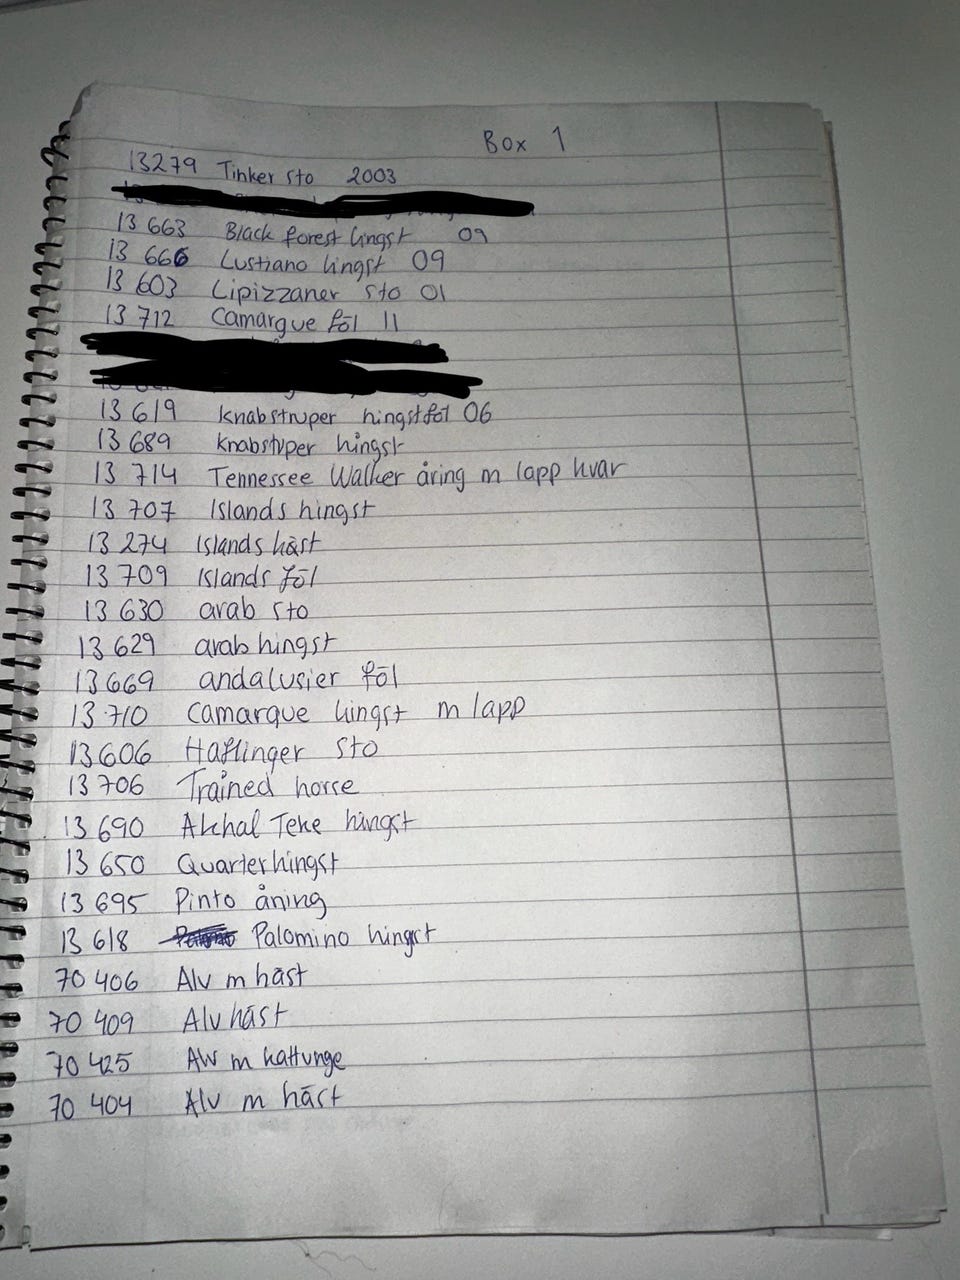 Box 1
13279 Tinker sto 2003
13 663 Black forest hingst 09
13 666 Lustiano hingst 09
13 603 Lipizzaner sto 01
13 712 Camargue föl 11
13 619 Knabstruper hingstföl 06
13 689 Knabstuper hingst
13 714 Tennessee Walker åring m lapp kvar
13 707 Islands hingst
13 274 Islands häst
13 709 Islands föl
13 630 arab sto
13 629 arab hingst
13 669 andalusier föl
13 710 Camargue hingst m lapp
13606 Haflinger sto
13 706 Trained horse
13 690 Akhal Teke hingst
13 650 Quarterhingst
13 695 Pinto åring
13 618 Palomino hingst
70 406 Alv m häst
70 409 Alv häst
70 425 Alv m kattunge
70 404 Alv m häst